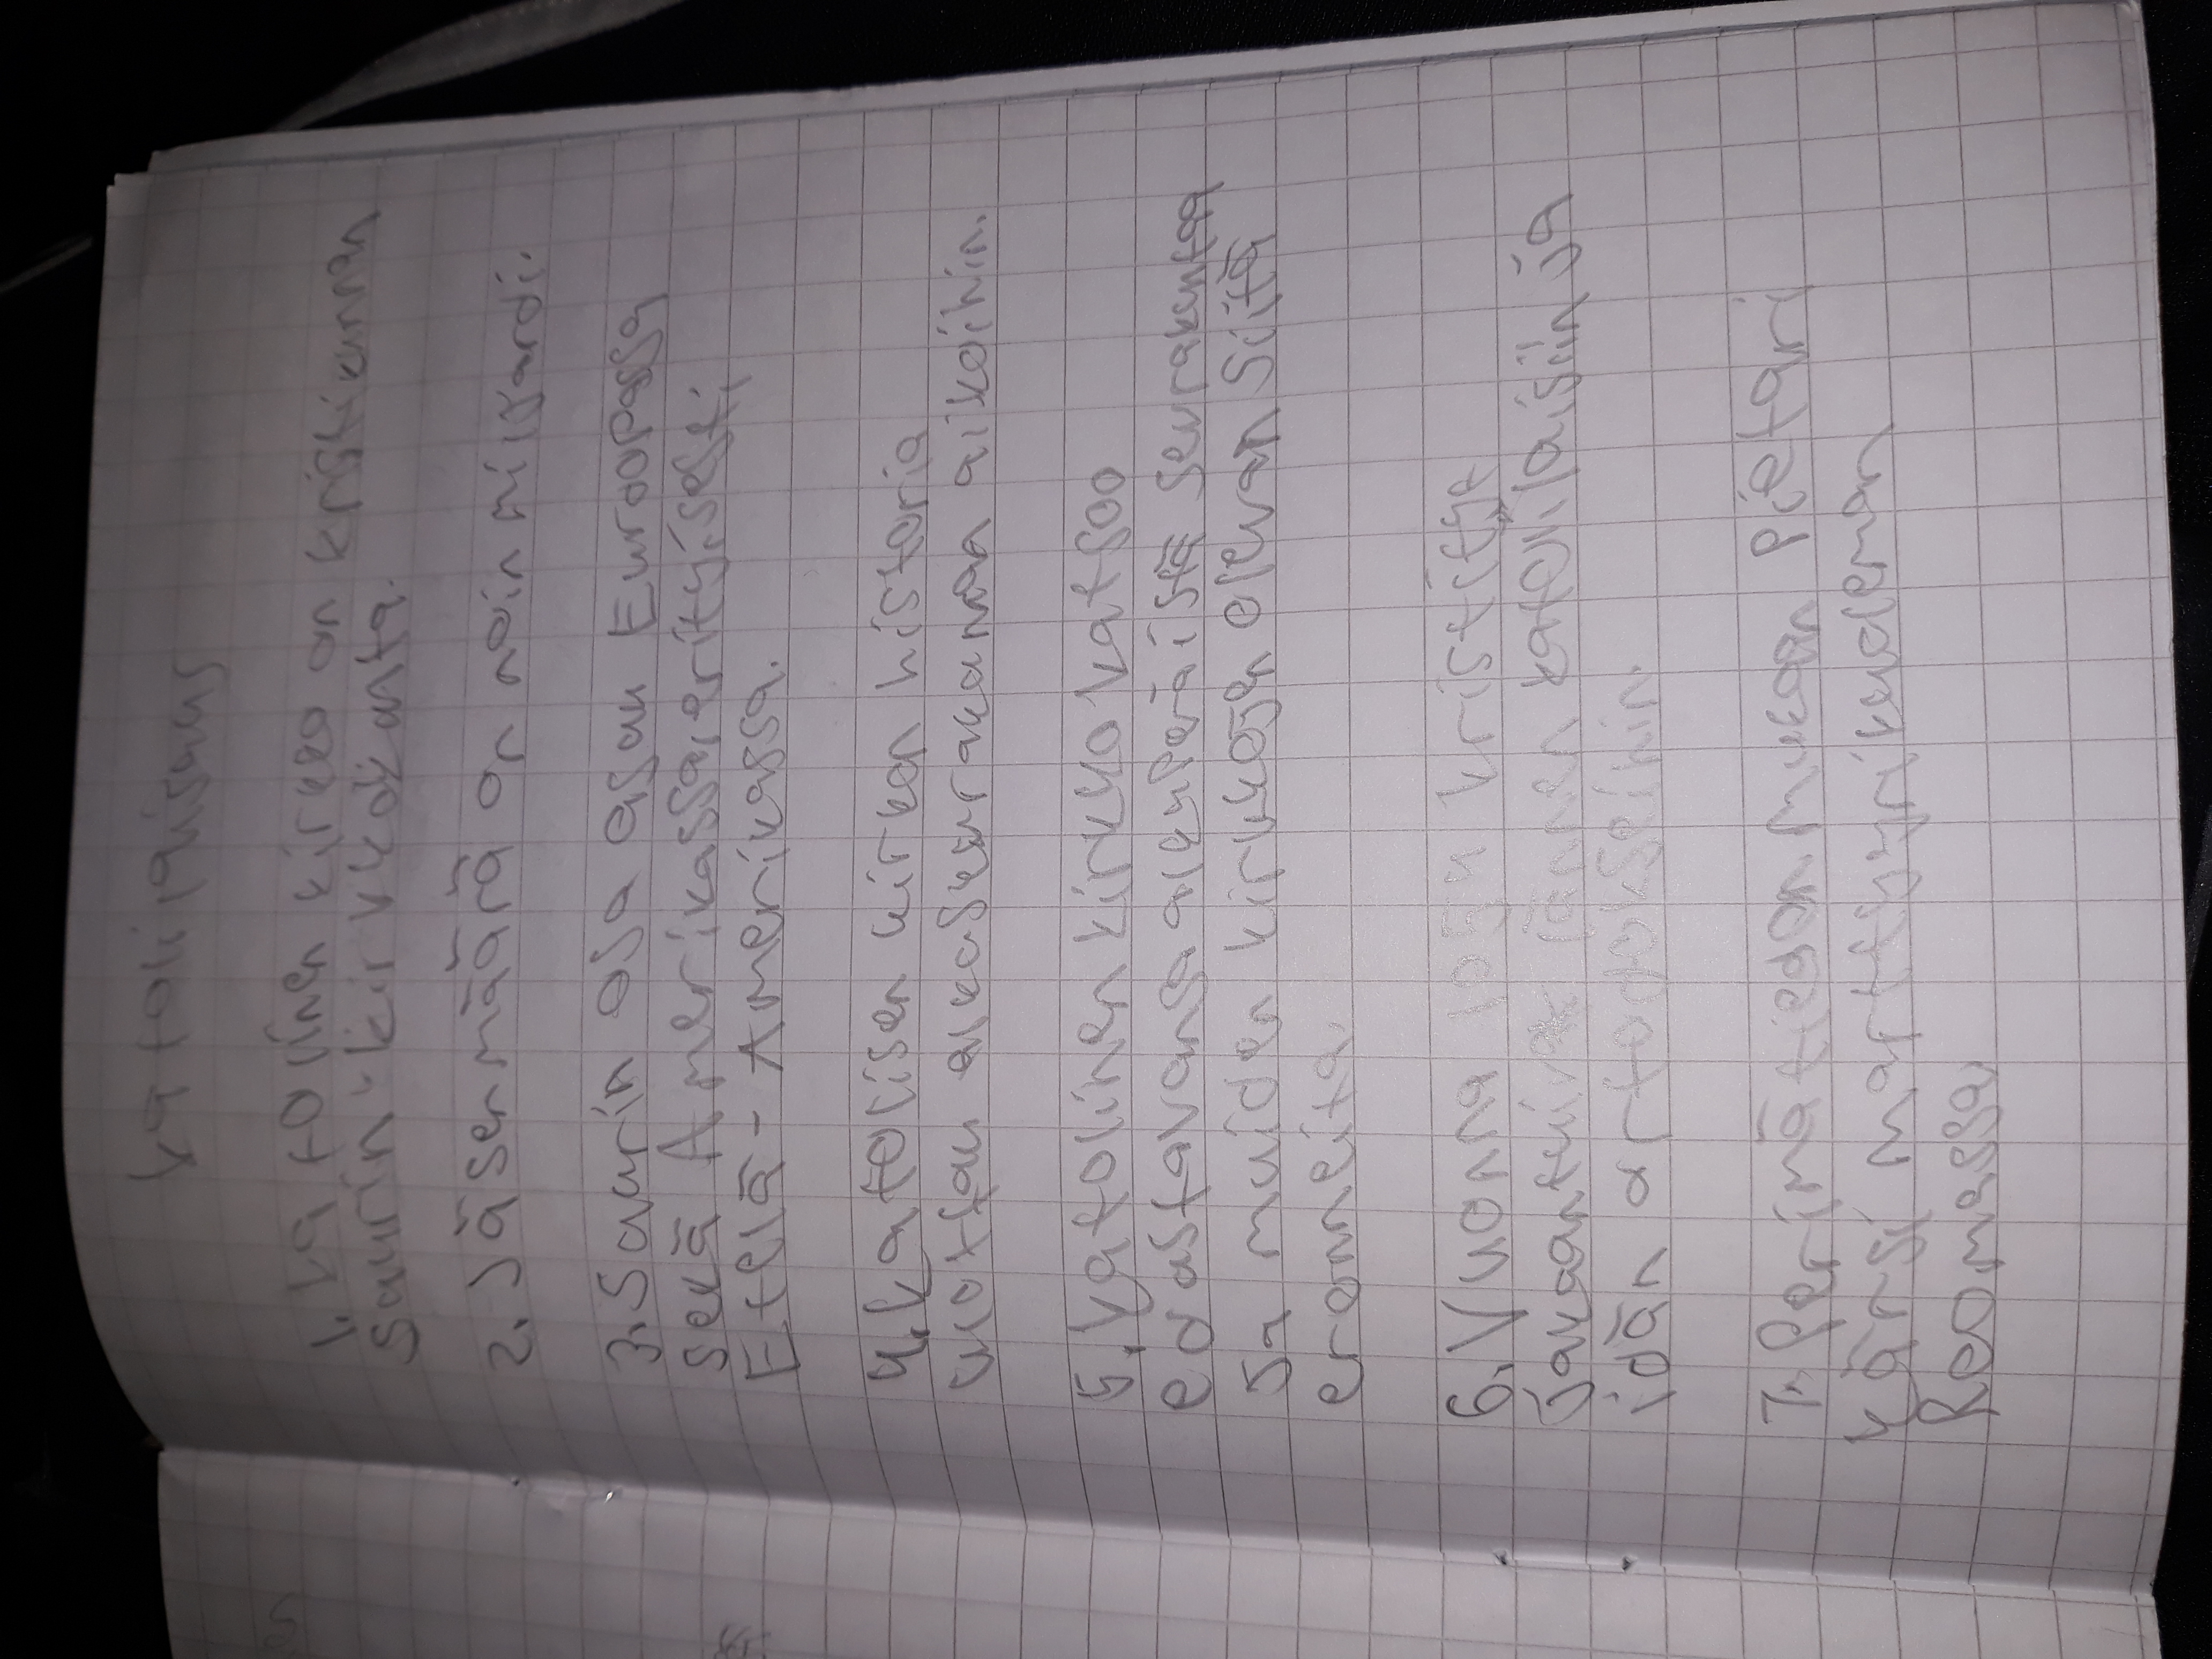 katolilaisuus
1. katolinen kirkko on kristikunnan
suurin kirkkokunta.
2. Jäsenmäärä on noin miljardi.
3. Suurin osa asuu Euroopassa
sekä Amerikassa, erityisesti,
Etelä-Amerikassa.
4. Katolisen kirkon historia
ulottuu alkuseurakunnan aikoihin.
5. Katolinen kirkko katsoo
edustavansa alkuperäistä seurakuntaa
ja muiden kirkkojen olevan siitä
eronneita.
6. Vuonna 1054 kristityt
jakaantuivat länsen katolilaisiin ja
idän ortodokseihin.
7. Perimätiedon mukaan Pietari
kärsi marttyyrikuoleman
Roomassa.